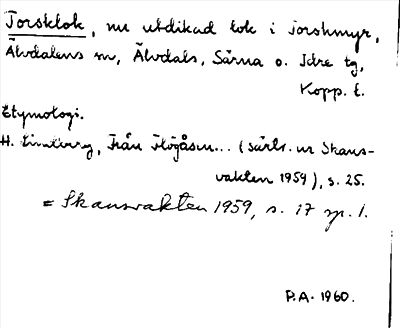 Torsklok, nu utdikad lok i Torshmyr,
Älvdalens sn, Älvdals, Särna o. Idre tg,
Kopp. l.
Etymologi.
H. Lindberg, Från Högåsen... (särtr. ur Skans-
vakten 1959), s. 25.
= Skansvakten 1959, s. 17 sp. 1.
P.A. 1960.